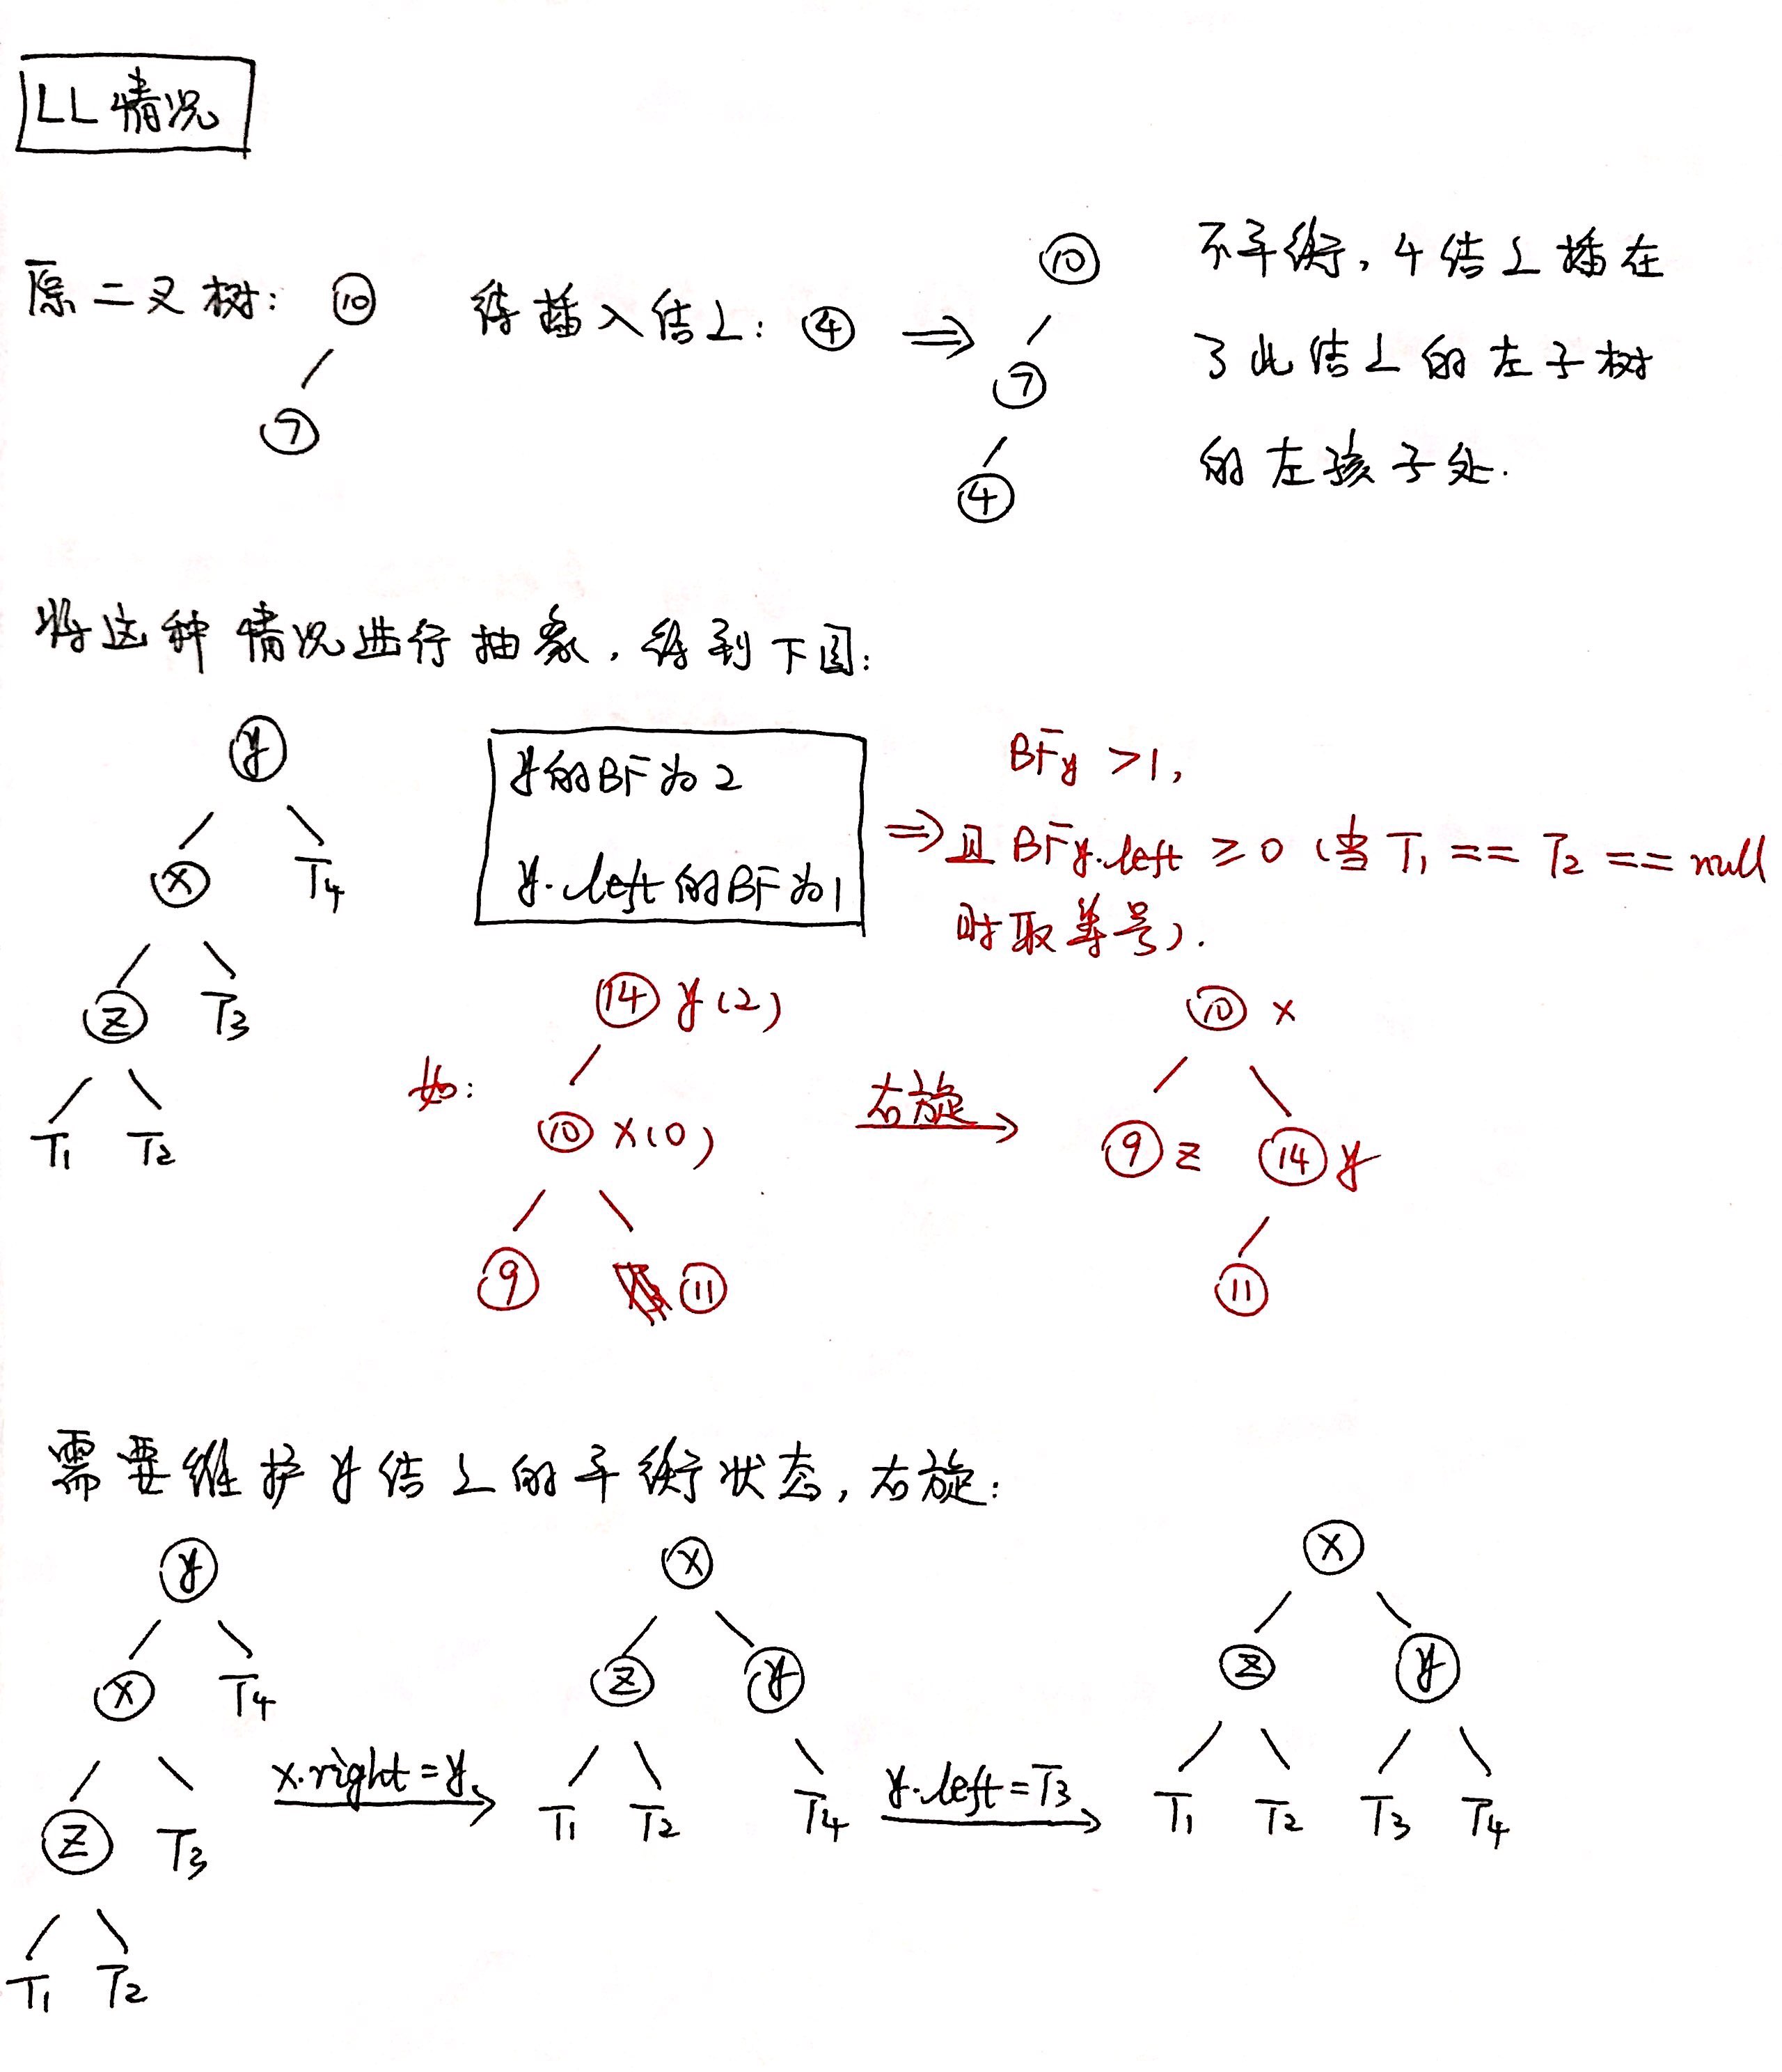 LL情况
原二叉树: 10 待插入结点: 4 ⇒ 10 不平衡,4结点插在
7 7 了此结点的左子树
4 的左孩子处.
将这种情况进行抽象,得到下图:
y
x T4
z T3
T1 T2
y的BF为2
y.left的BF为1
⇒ BFy >1,
且 BFy.left ≥0 (当 T1 == T2 == null
时取等号).
如: 14 y(2)
10 x(0)
9 11
右旋
10 x
9 z 14 y
11
需要维护y结点的平衡状态,右旋:
y
x T4
z T3
T1 T2
x.right=y
x
z y
T1 T2 T4
y.left=T3
x
z y
T1 T2 T3 T4